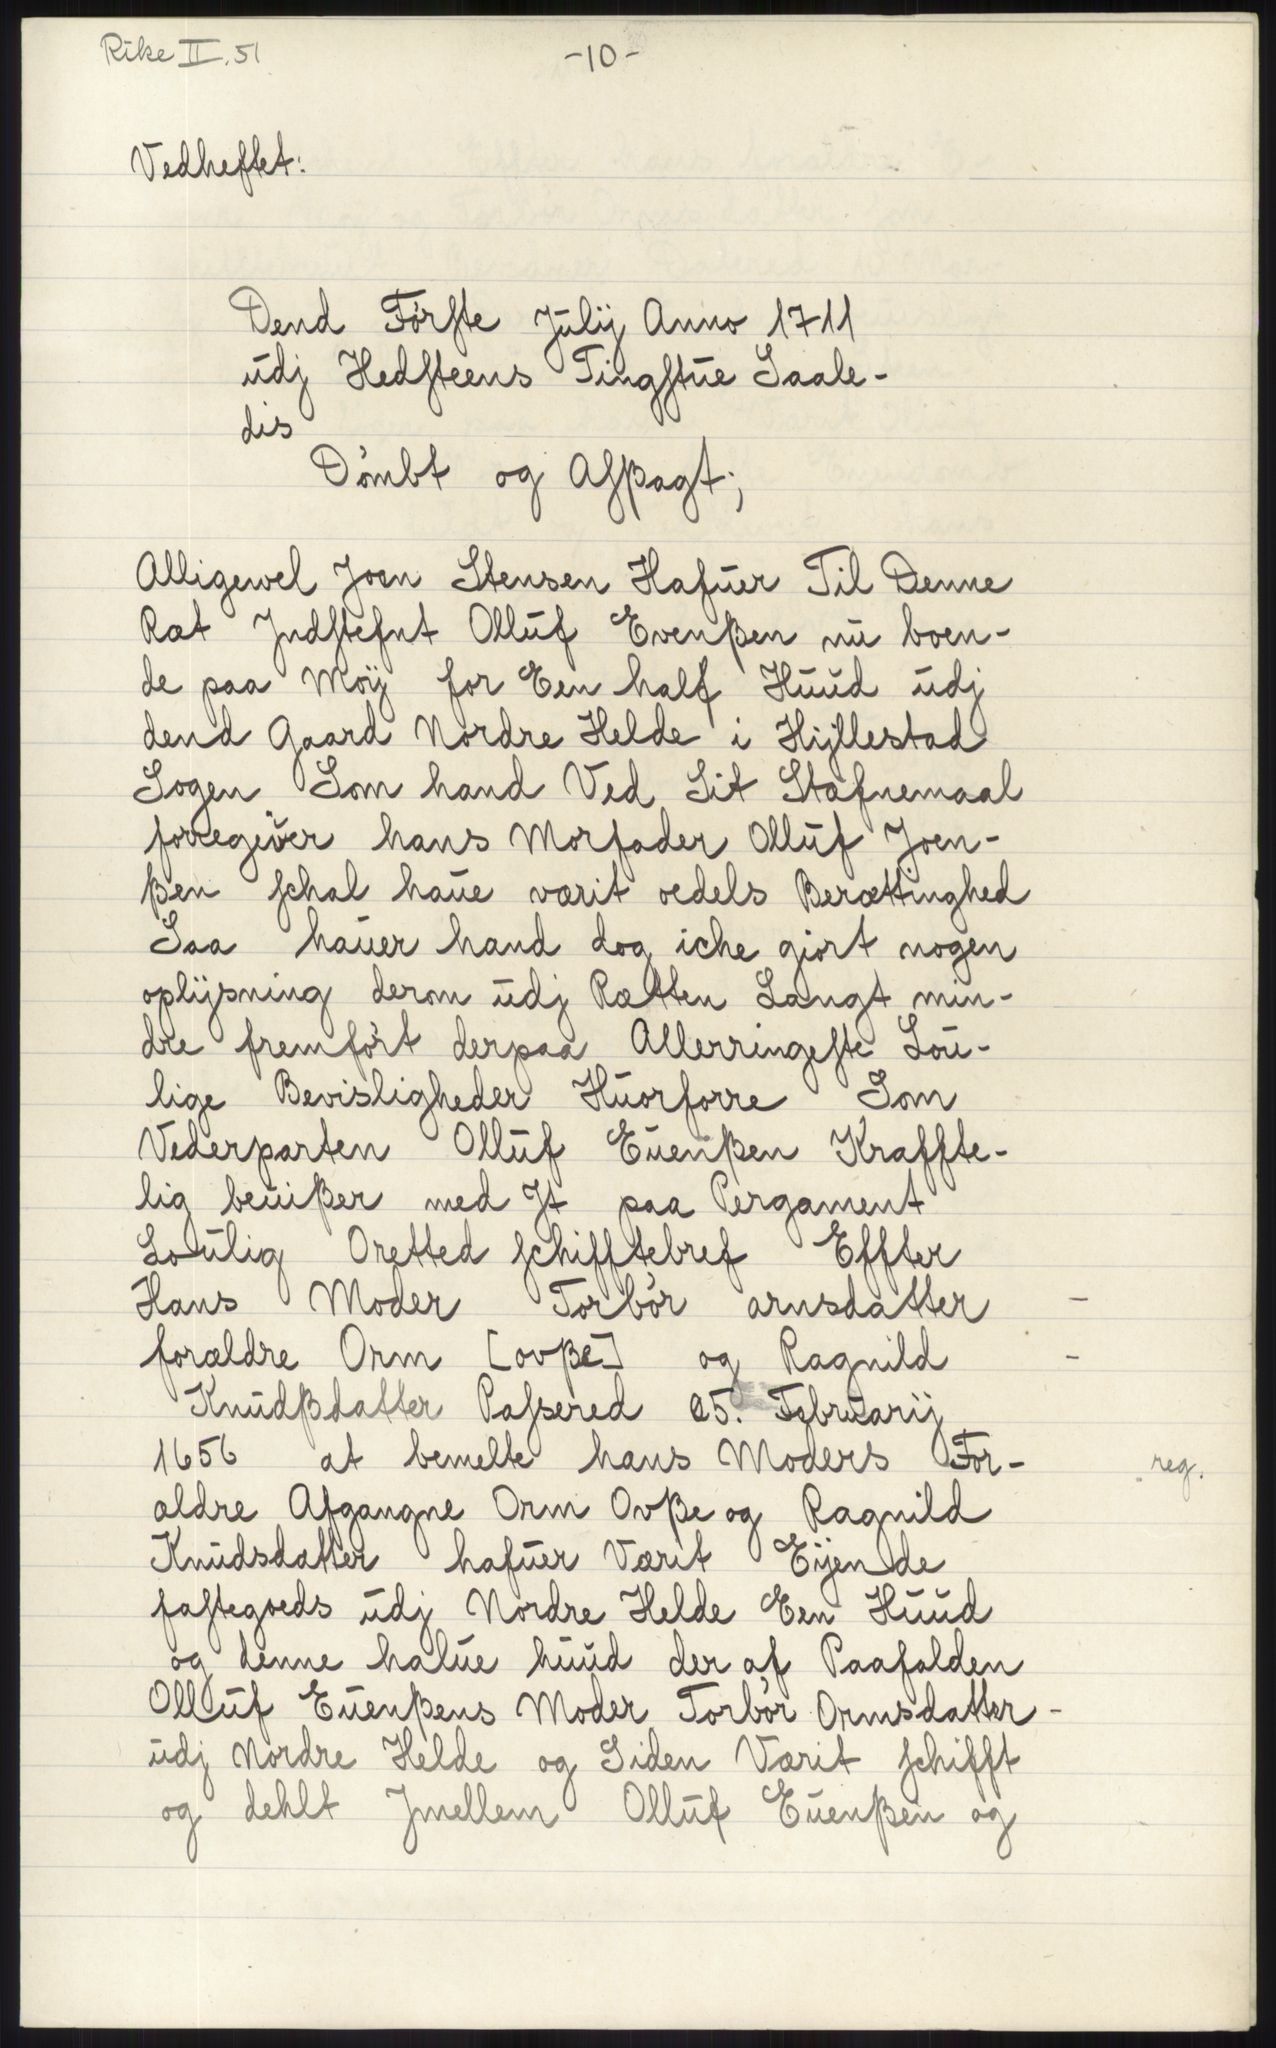 Rike II. 51
-10-
Vedheftet:
Dend Förste Julij Anno 1711
udj Hedsteens Tingstue Saale-
dis
Dömbt og Afßagt;
Alligevel Joen Stensen Hafuer Til Denne
Ræt Jndstefnt Olluf Evenßen nu boen-
de paa Moÿ for Een half Huud udj
dend Gaard Nordre Helde i Hijllestad
Sogen Som hand Ved Sit Stæfnemaal
forregiver hans Morfader Olluf Joen-
ßen schal haue værit oedels Berættinghed
Saa hauer hand dog iche giort nogen
oplijsning derom udj Rætten Langt min-
dre fremført derpaa Allerringeste Lou-
lige Bevisligheder Huorforre Som
Vederparten Olluf Euenßen Kraffte-
lig beuißer med Jt paa Pergament
Loulig Oretted schifftebref Effter
Hans Moder Torbör arnsdatter -
forældre Orm [ovße] og Ragnild -
Knudßdatter Passered 25. Februarij
1656 at bemelte hans Moders For- reg.
ældre Afgangne Orm Ovße og Ragnild
Knudsdatter hafuer Værit Eijende
fastegoeds udj Nordre Helde Een Huud
og denne halue huud der af Paafalden
Olluf Euenßens Moder Torbör Ormsdatter -
udj Nordre Helde og Siden Værit schifft
og dehlt Jmellem Olluf Euenßen og